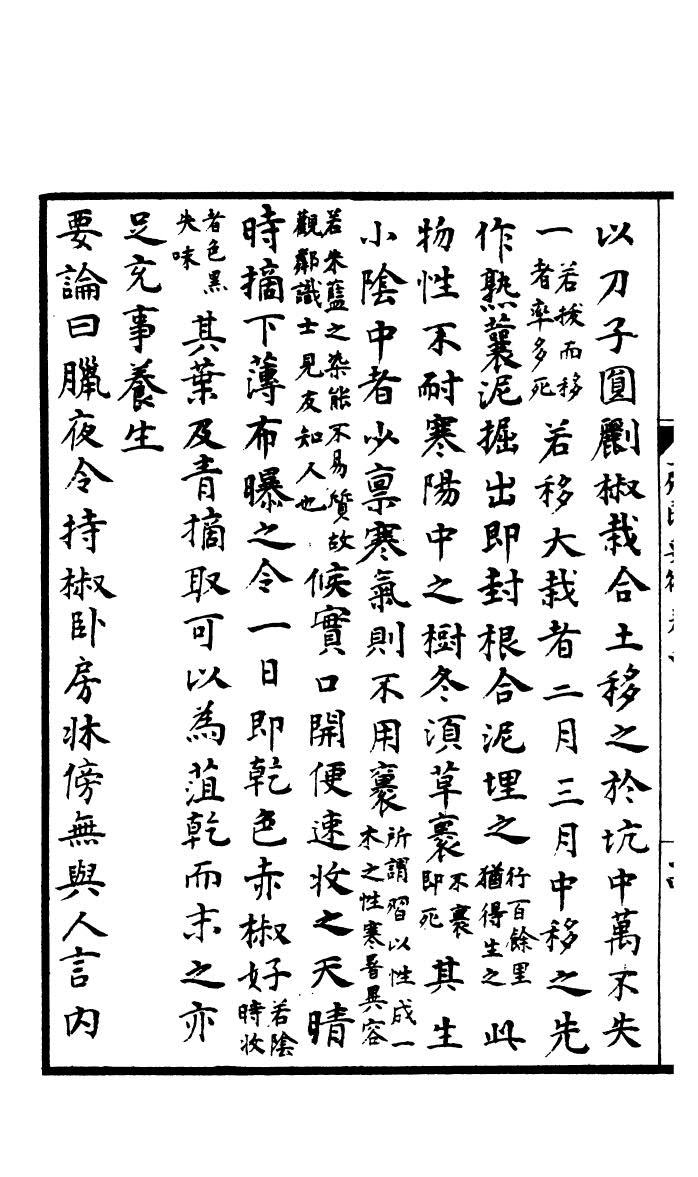 以刀子圓劚椒栽合土移之於坑中萬不失
一若拔而移者率多死若移大栽者二月三月中移之先
作熟蘘泥掘出即封根合泥埋之行百餘里猶得生之此
物性不耐寒陽中之樹冬須草裹不裹即死其生
小陰中者少禀寒氣則不用裹所謂習以性成一木之性寒暑異容
若朱藍之染能不易質故觀鄰識士見友知人也候實口開便速收之天晴
時摘下薄布曝之令一日即乾色赤椒好若陰時收
者色黑失味其葉及青摘取可以為菹乾而末之亦
足充事養生
要論曰臘夜令持椒卧房牀傍無與人言内